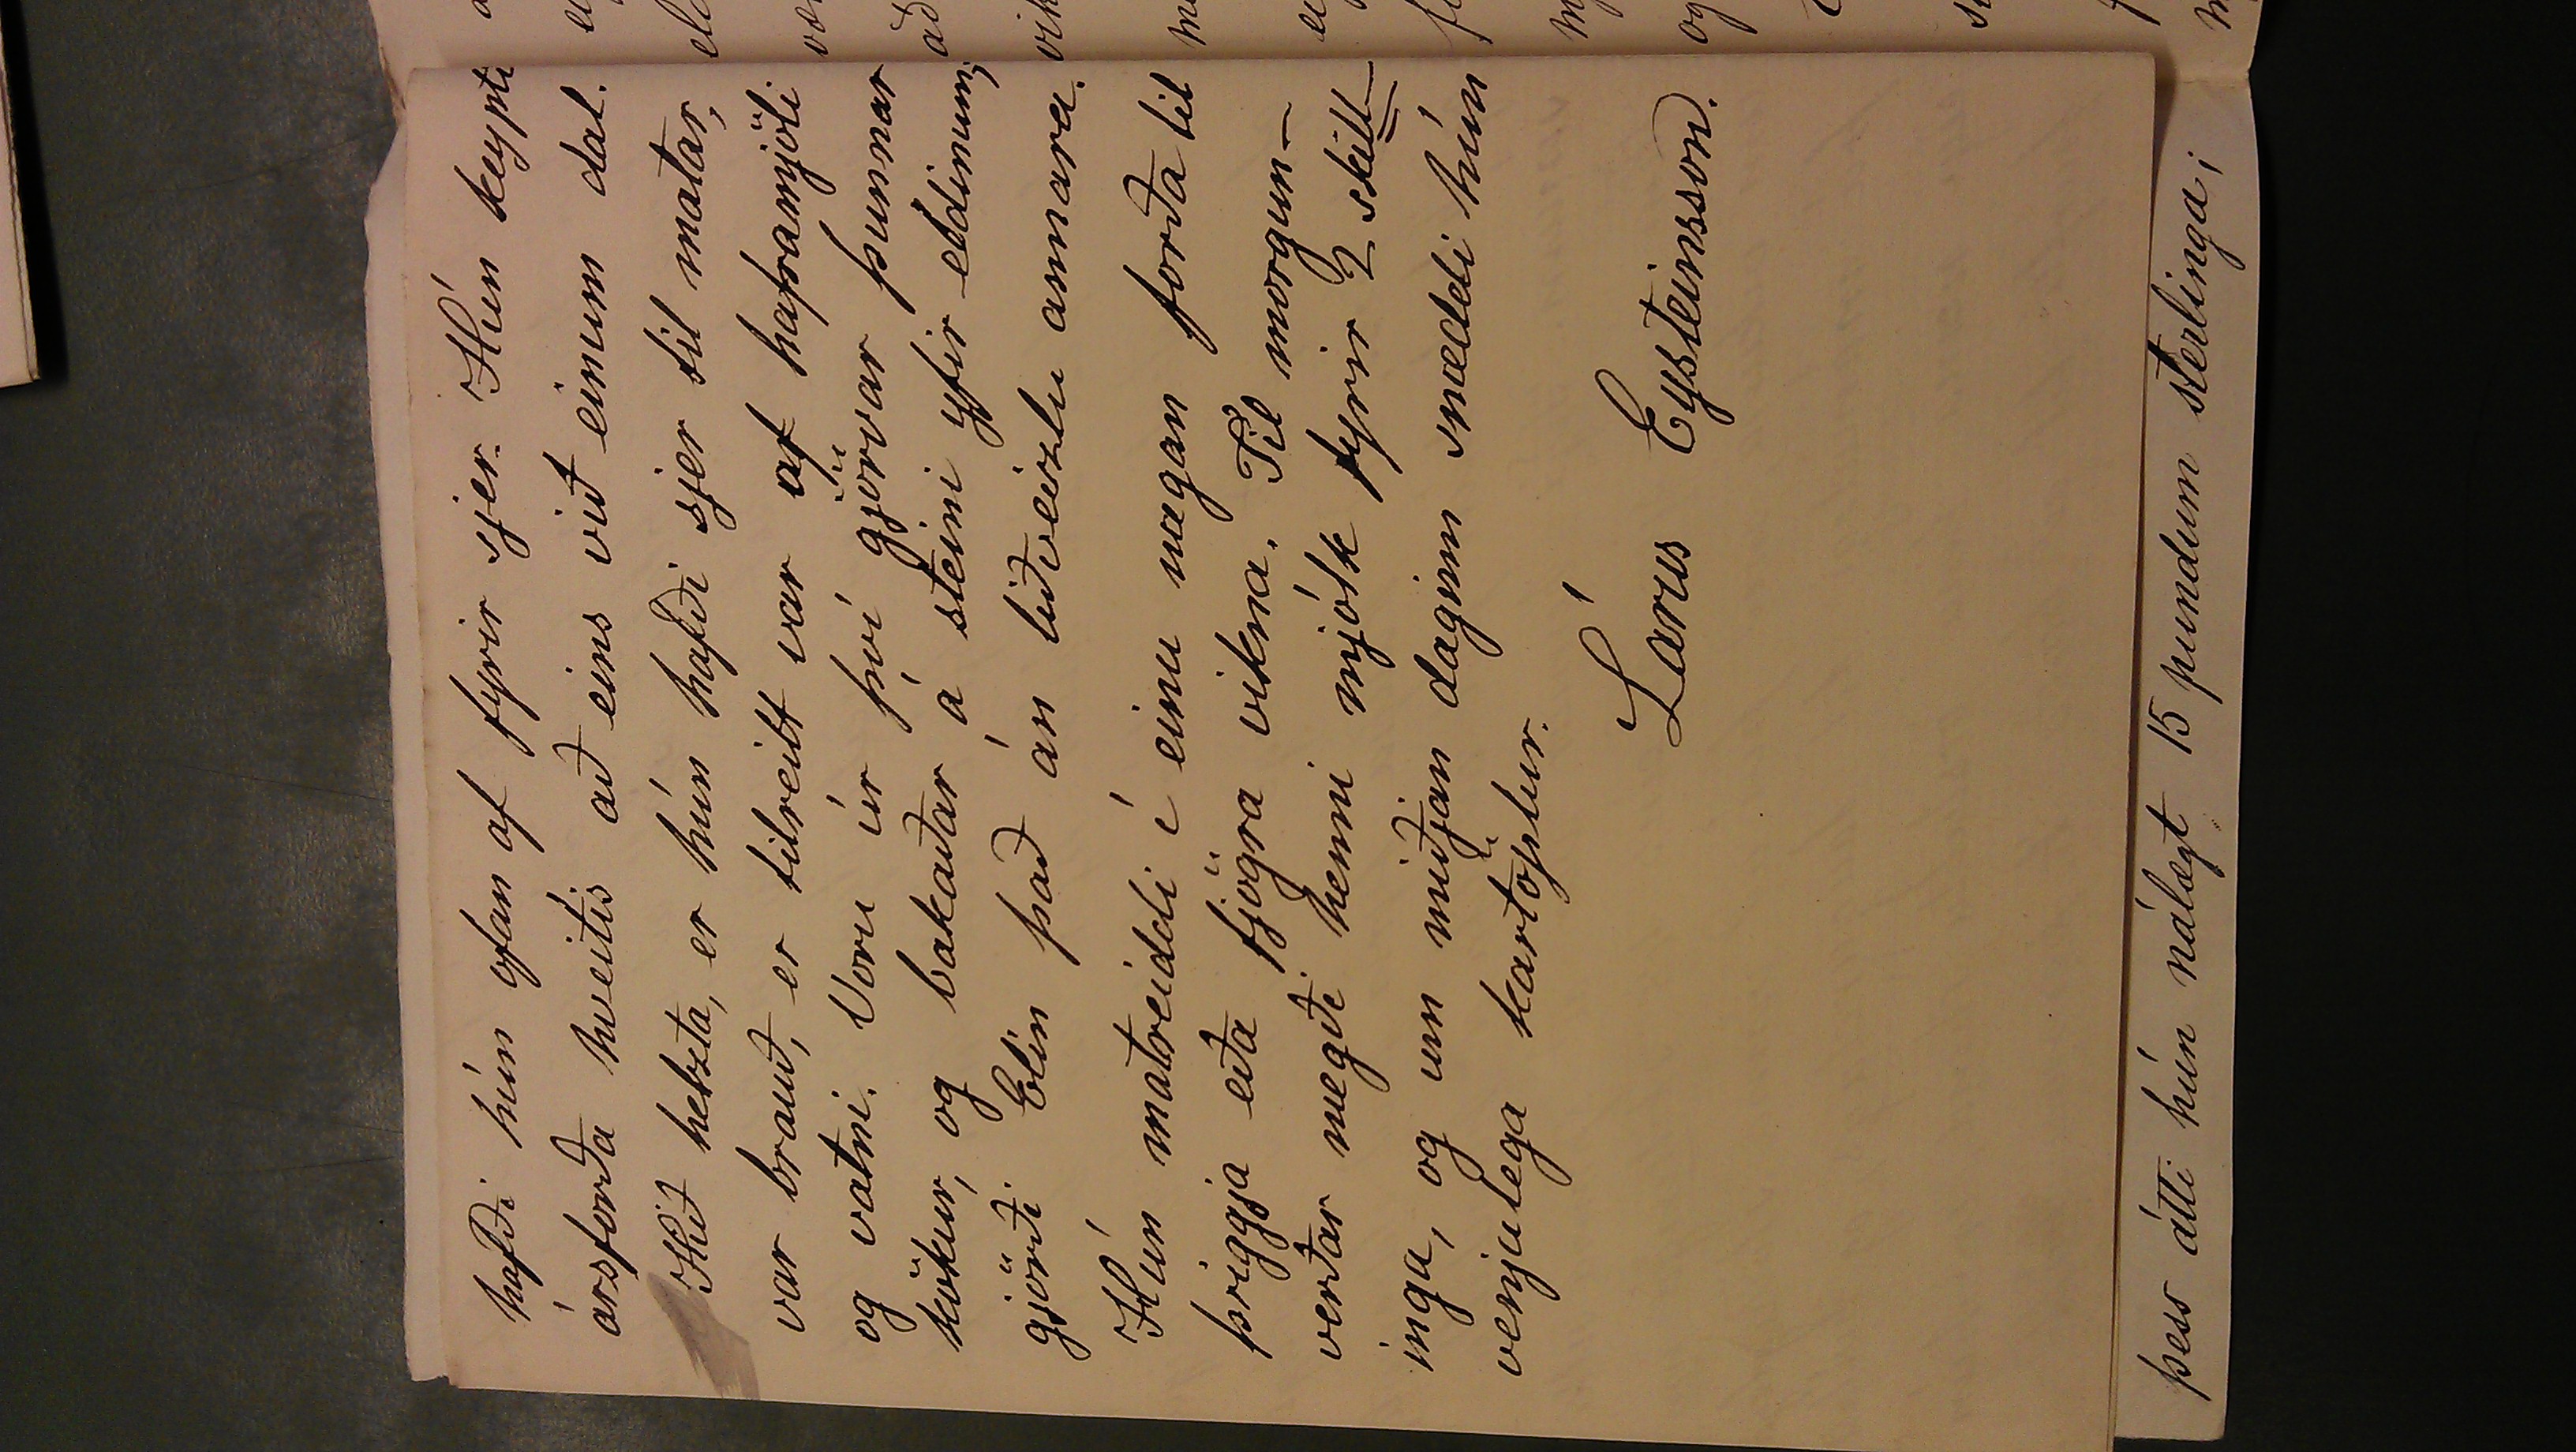 hafði hún ofan af fyrir sjer. Hún keypti
ársforða hveitis að eins við einum dal.
Hið helzta, er hún hafði sjer til matar,
var brauð, er tilreitt var af haframjöli
og vatni. Voru úr því gjörvar þunnar
kökur, og bakaðar á steini yfir eldinum;
gjörði Elín það án liðveizlu annara.
Hún matreiddi í einu nægan forða til
þriggja eða fjögra vikna. Til morgun-
verðar nægði henni mjólk fyrir 2 skild-
inga, og um miðjan daginn snæddi hún
venjulega kartöplur.
Lárus Eysteinsson.
þess átti hún nálægt 15 pundum sterlinga;